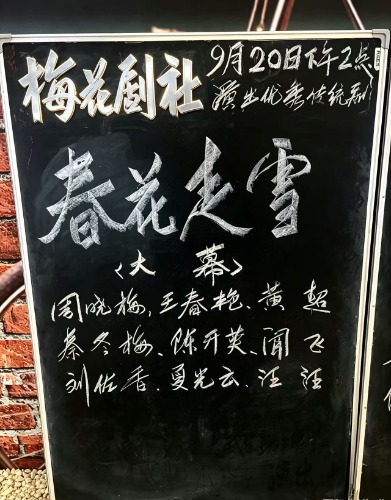 梅花剧社
9月20日下午2点
演出优秀传统剧
春花走雪
<大幕>
周晓梅、王春艳、黄超
秦冬梅、陈开英、闻飞
刘佐香、夏光云、汪汪